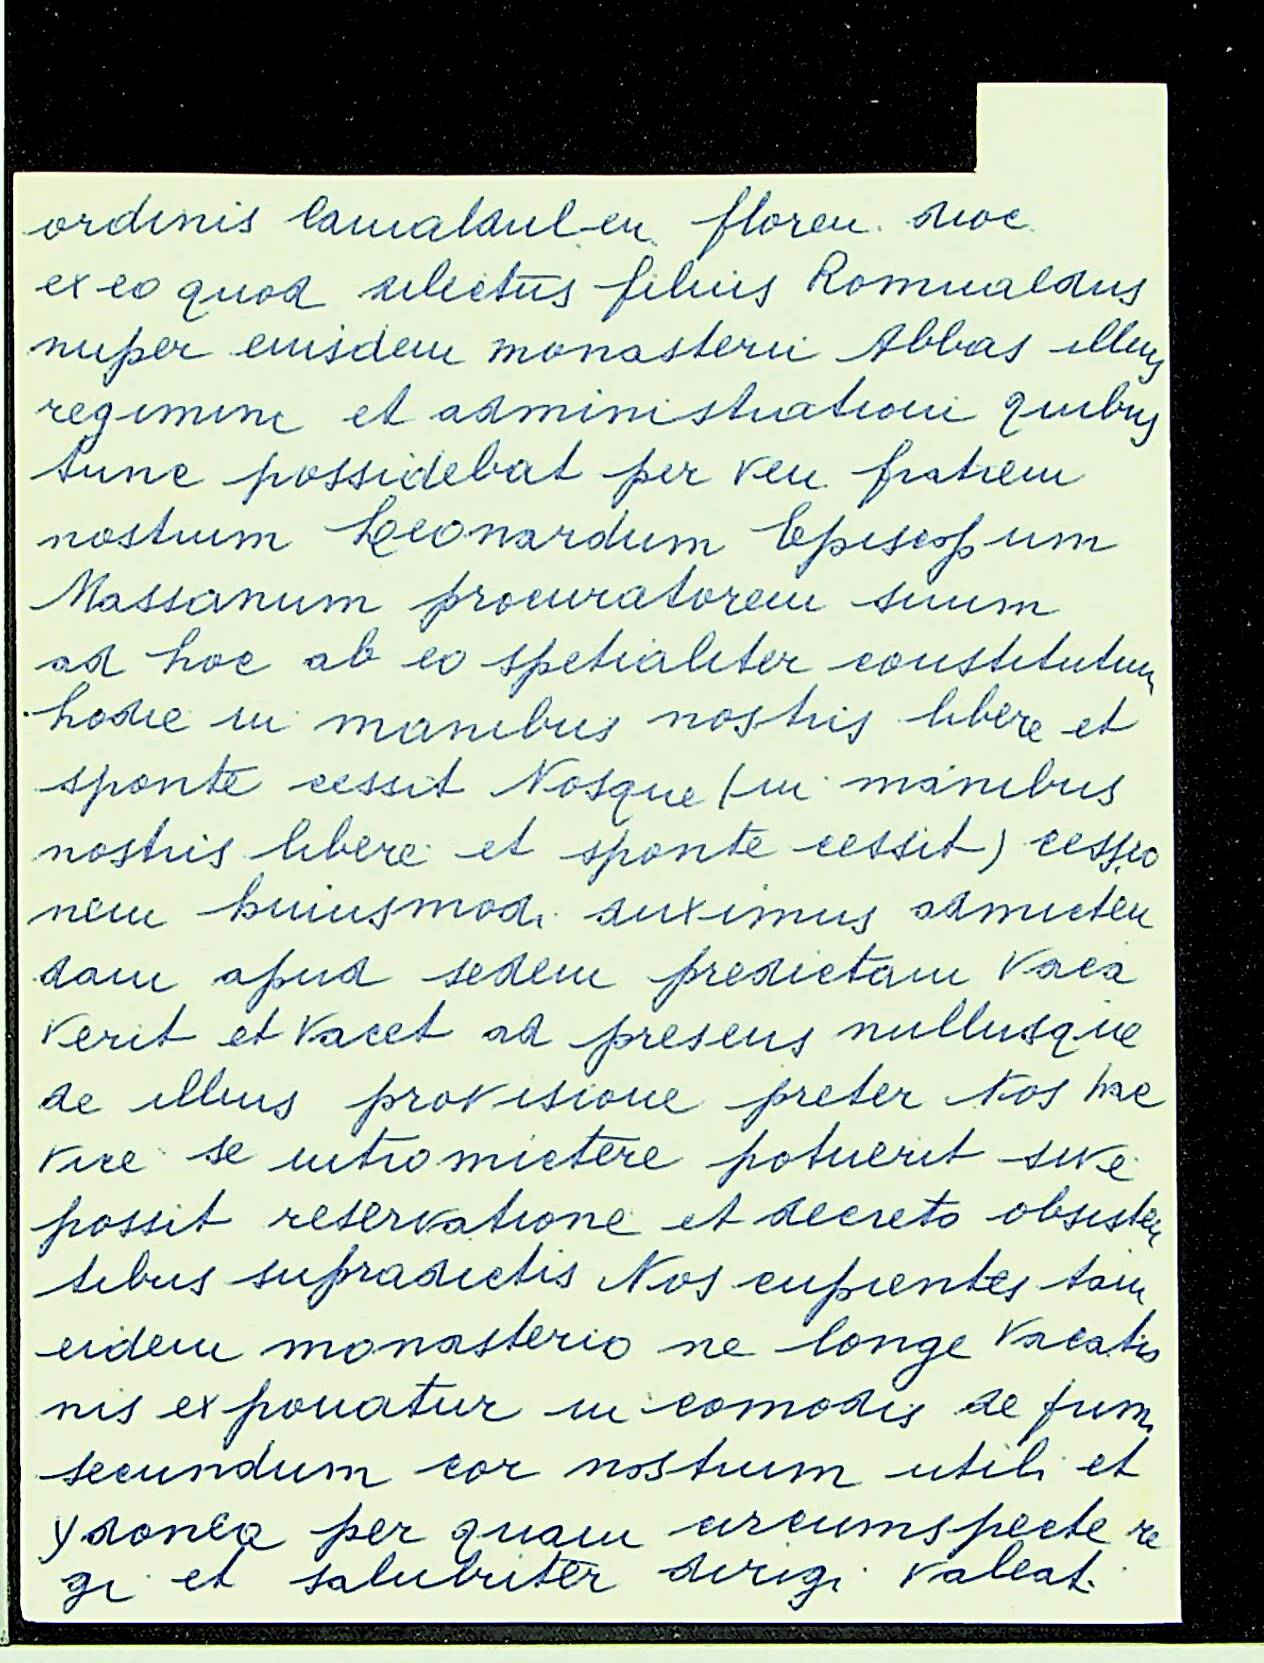 ordinis Camaldul-en. floren. dioc.
ex eo quod dilectus filius Romualdus
nuper eiusdem monasterii Abbas illius
regimini et administrationi quibus
tunc possidebat per ven. fratrem
nostrum Leonardum Episcopum
Massanum procuratorem suum
ad hoc ab eo spetialiter constitutum
hodie in manibus nostris libere et
sponte cessit Nosque (in manibus
nostris libere et sponte cessit) cessio
nem huiusmodi duximus admicten
dam apud sedem predictam vaca
verit et vacet ad presens nullusque
de illius provisione preter Nos hac
vice se intromictere potuerit sive
possit reservatione et decreto obsisten
tibus supradictis Nos cupientes tam
eidem monasterio ne longe vacatio
nis exponatur in comodis de
secundum cor nostrum utili et
ydonea per quam circumspecte re
gi et salubriter dirigi valeat.